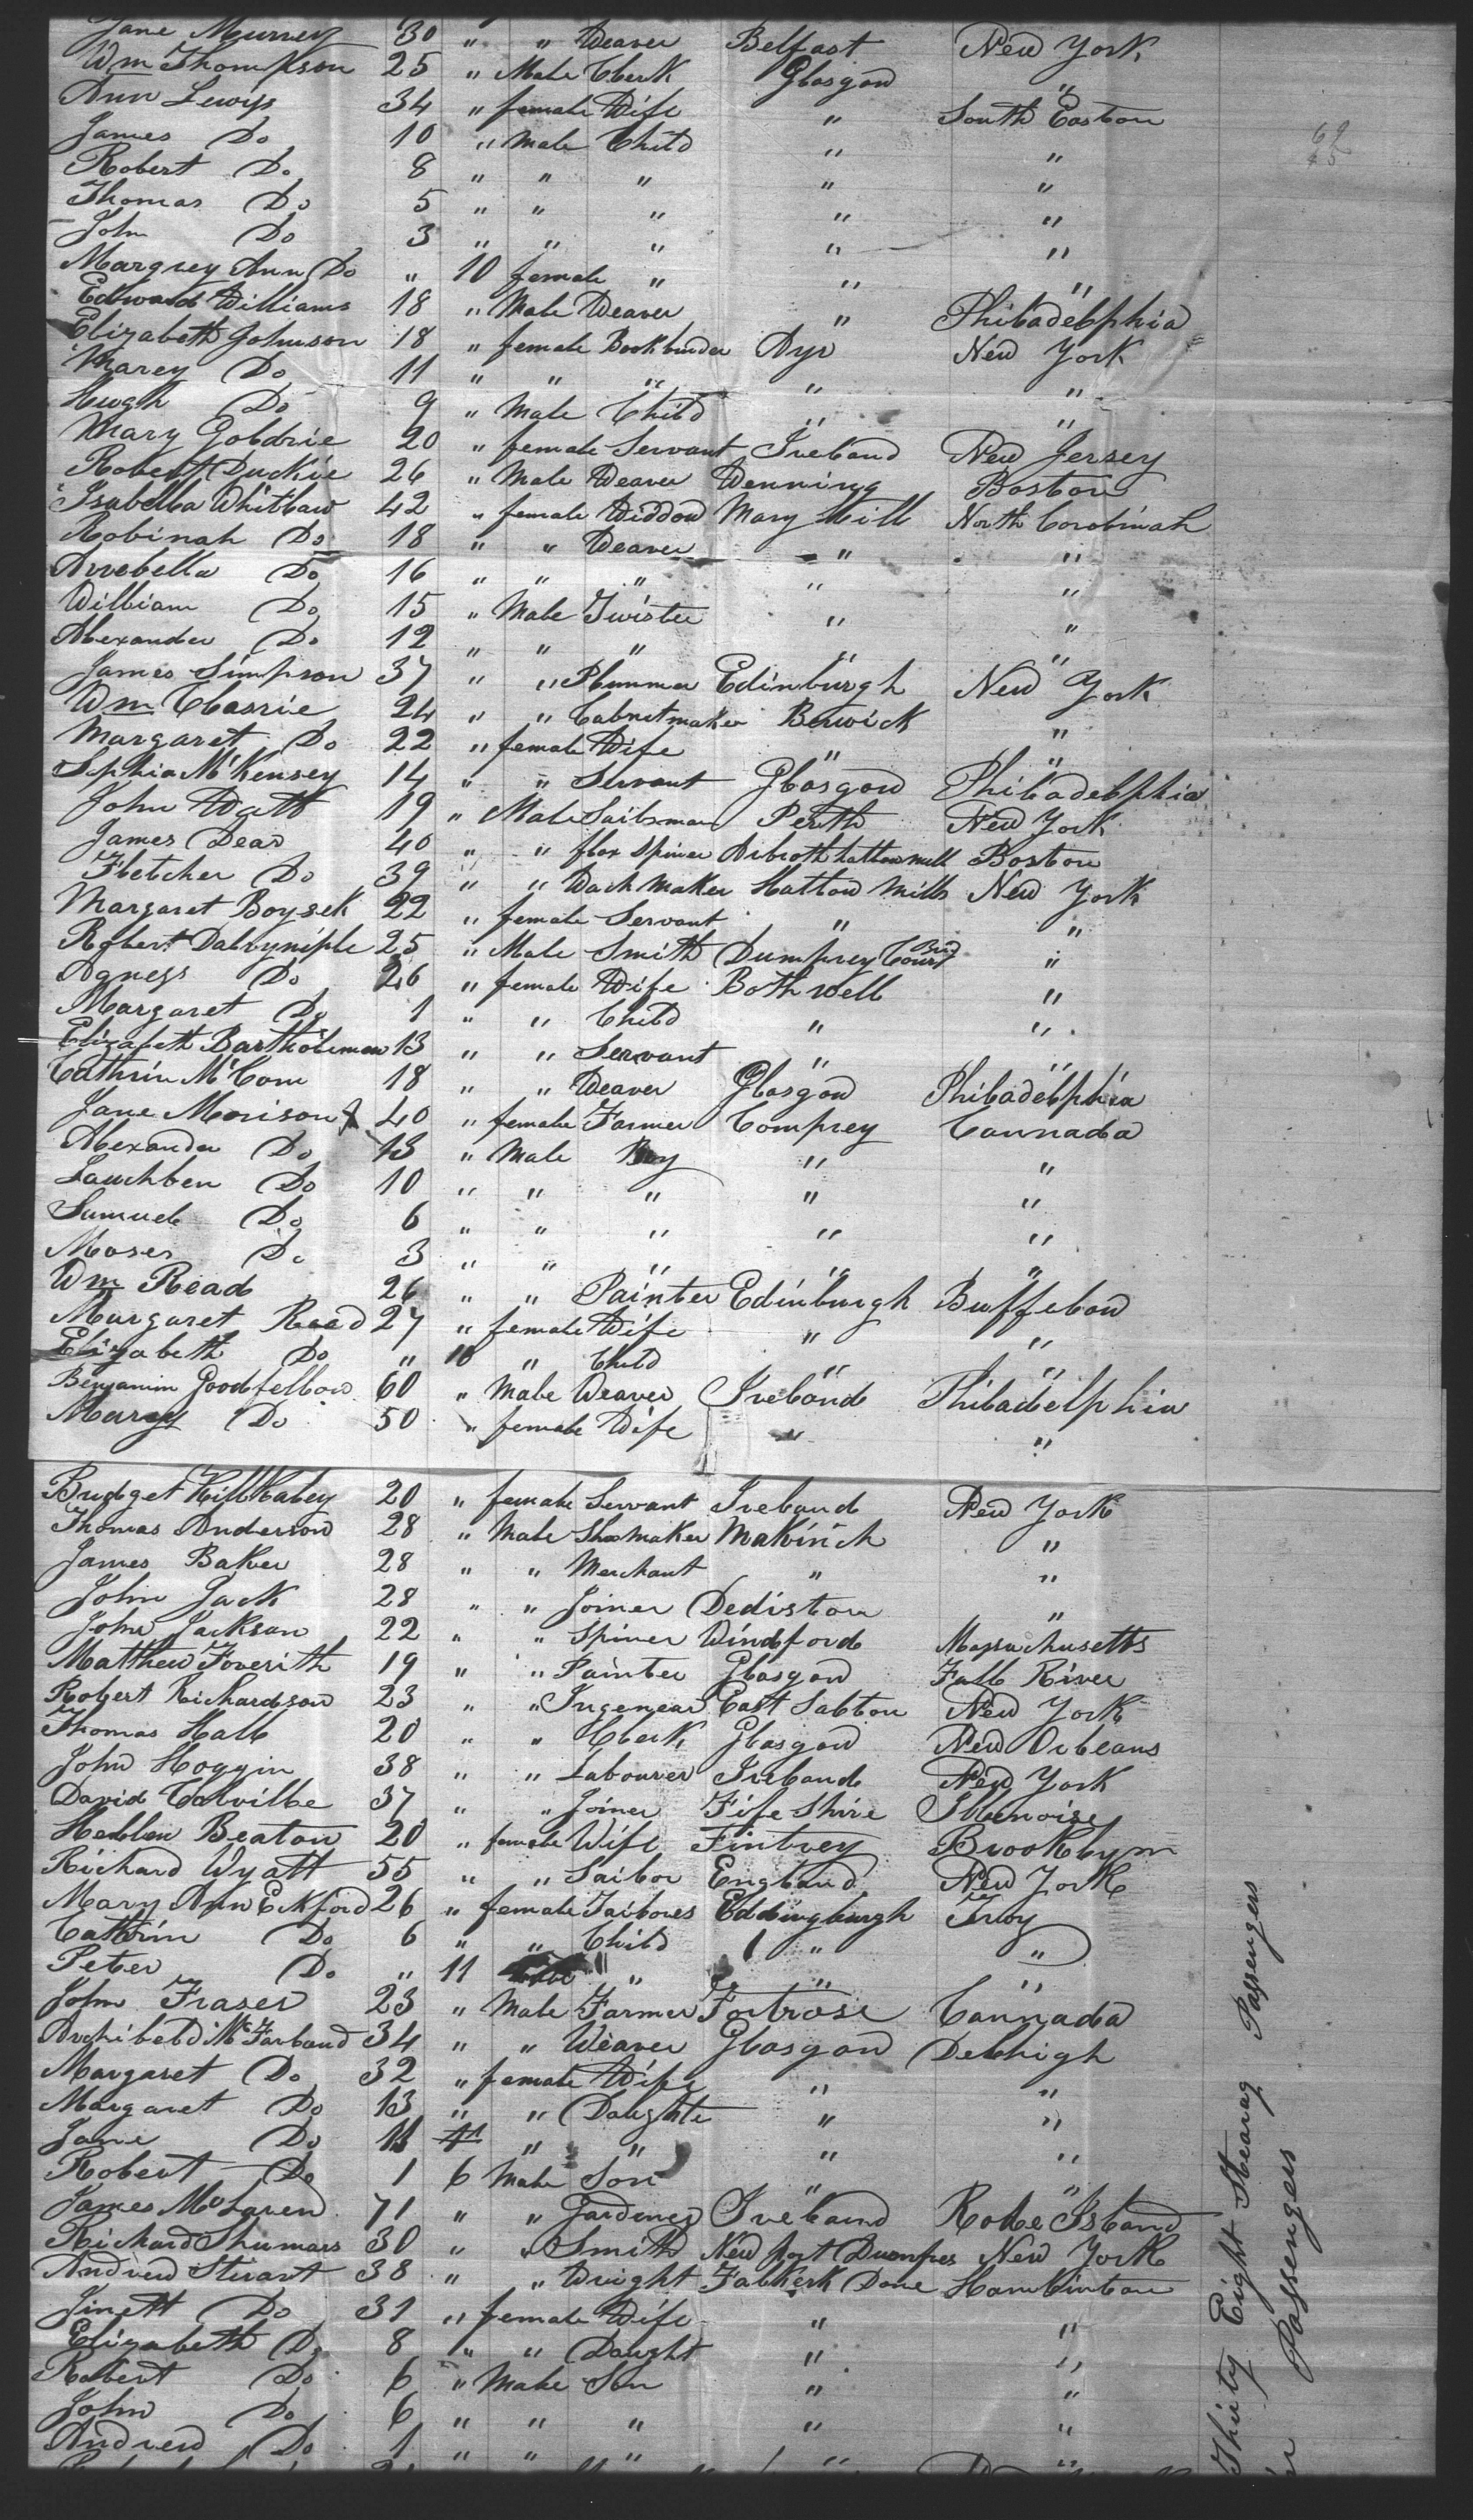 Jane Murrey 30 " " Weaver Belfast New York
Wm Thompson 25 " Male Clerk Glasgow "
Ann Lewys 34 " female Wife " South Easton
James Do 10 " Male Child " "
Robert Do 8 " " " " "
Thomas Do 5 " " " " "
John Do 3 " " " " "
Margrey Ann Do " 10 female " " "
Edward Williams 18 " Male Weaver " Philadelphia
Elizabeth Johnson 18 " female Bookbinder Ayr New York
Marey Do 11 " " " " "
Hugh Do 9 " Male Child " "
Mary Goldrie 20 " female Servant Ireland New Jersey
Robert Duckie 26 " Male Weaver Denning Boston
Isabella Whitlaw 42 " female Widdow Mary Hill North Carolinah
Robinah Do 18 " " Weaver " "
Arrebella Do 16 " " " " "
William Do 15 " Male Twister " "
Alexander Do 12 " " " " "
James Simpson 37 " " Plummer Edinburgh New York
Wm Classrie 24 " " Cabnetmaker Berwick "
Margaret Do 22 " female Wife " "
Sophia McKensey 14 " " Servant Glasgow Philadelphia
John Watt 19 " Male Sailsman Perth New York
James Dear 40 " " flax Spiner Arbroth hattonmill Boston
Fletcher Do 39 " " Dack Maker Hatton Mills New York
Margaret Boysek 22 " female Servant " "
Robert Dalrymple 25 " Male Smith Dumfrey Court "
Agness Do 26 " female Wife Bothwell "
Margaret Do 1 " " Child " "
Elizabeth Bartholemew 13 " " Servant " "
Cathrin McCom 18 " " Weaver Glasgow Philadelphia
Jane Morison 40 " female Farmer Comprey Cannada
Alexander Do 13 " Male Boy " "
Lauchlen Do 10 " " " " "
Samuel Do 6 " " " " "
Moses Do 3 " " " " "
Wm Read 26 " " Painter Edinburgh Buffelow
Margaret Read 27 " female Wife " "
Elizabeth Do " 10 " Child " "
Benjamin Goodfellow 60 " Male Weaver Ireland Philadelphia
Marey Do 50 " female Wife " "
Bridget Killkaley 20 " female Servant Ireland New York
Thomas Anderson 28 " Male Shoemaker Makinch "
James Baker 28 " " Merchant " "
John Jack 28 " " Joiner Dediston "
John Jackson 22 " " Spiner Windford Massachusetts
Matthew Foverith 19 " " Painter Glasgow Fall River
Robert Richardson 23 " " Ingenear East Salton New York
Thomas Hall 20 " " Clerk Glasgow New Orleans
John Hoggin 38 " " Labourer Ireland New York
David Colville 37 " " Joiner Fife Shire Illenoise
Hellen Beaton 20 " female Wife Fintrey Brooklyn
Richard Wyatt 55 " " Sailor England New York
Mary Ann Eckford 26 " female Tailores Eddingburgh Troy
Cathrin Do 6 " " Child " "
Peter Do " 11 " " "
John Fraser 23 " Male Farmer Fortrose Cannada
Archibeld McFarland 34 " " Weaver Glasgow Delhigh
Margaret Do 32 " female Wife " "
Margaret Do 13 " " Daughte " "
Jane Do 11 " " " "
Robert Do 1 6 Male Son " "
James McLaren 71 " " Gardener Ireland Rode Island
Richard Shumars 30 " " Smith New port Dumfres New York
Andrew Stewart 38 " " Wright Falkerk Done Hamlinton
Jinett Do 31 " female Wife " "
Elizabeth Do 8 " " Daught " "
Robert Do 6 " Male Son " "
John Do 6 " " " " "
Andrew Do 1 " " " " "
Thirty Eight Stearag Passengers
Passengers